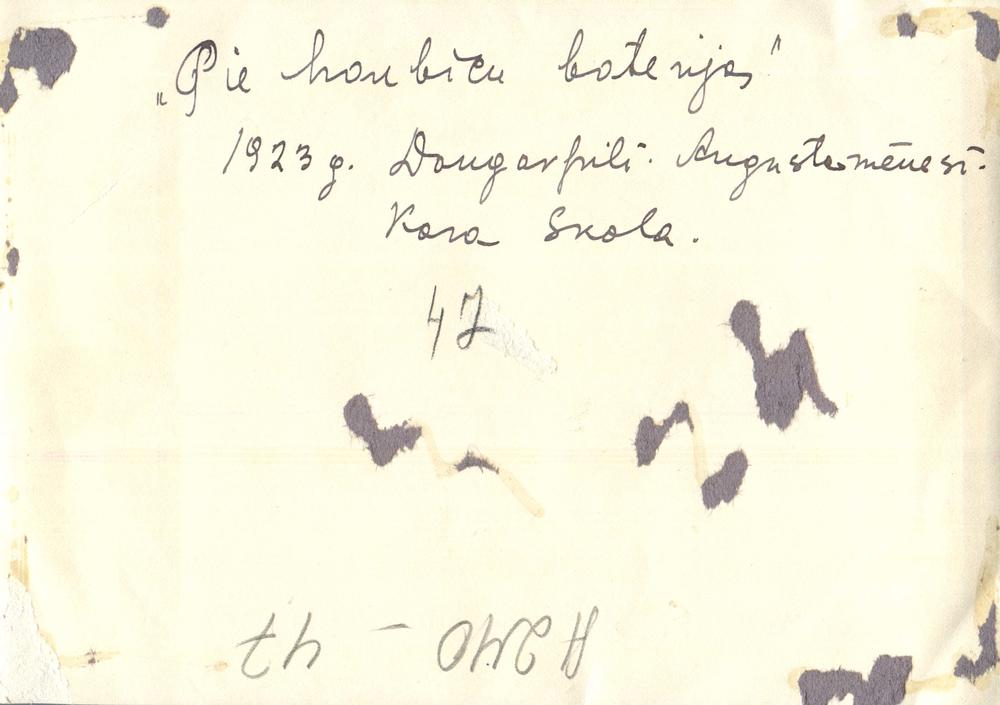 „Pie haubiču baterijas"
1923 g. Daugavpilī. Augusta mēnesī.
Kara Skola.
47
A240 - 47